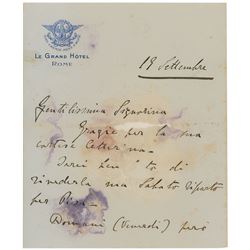 LE GRAND HÔTEL
ROME
19 Settembre
Gentilissima Signorina
Grazie per la sua
cortese letterina -
Sarei di
rivederla ma Sabato riparto
per
Domani (Venerdì) però